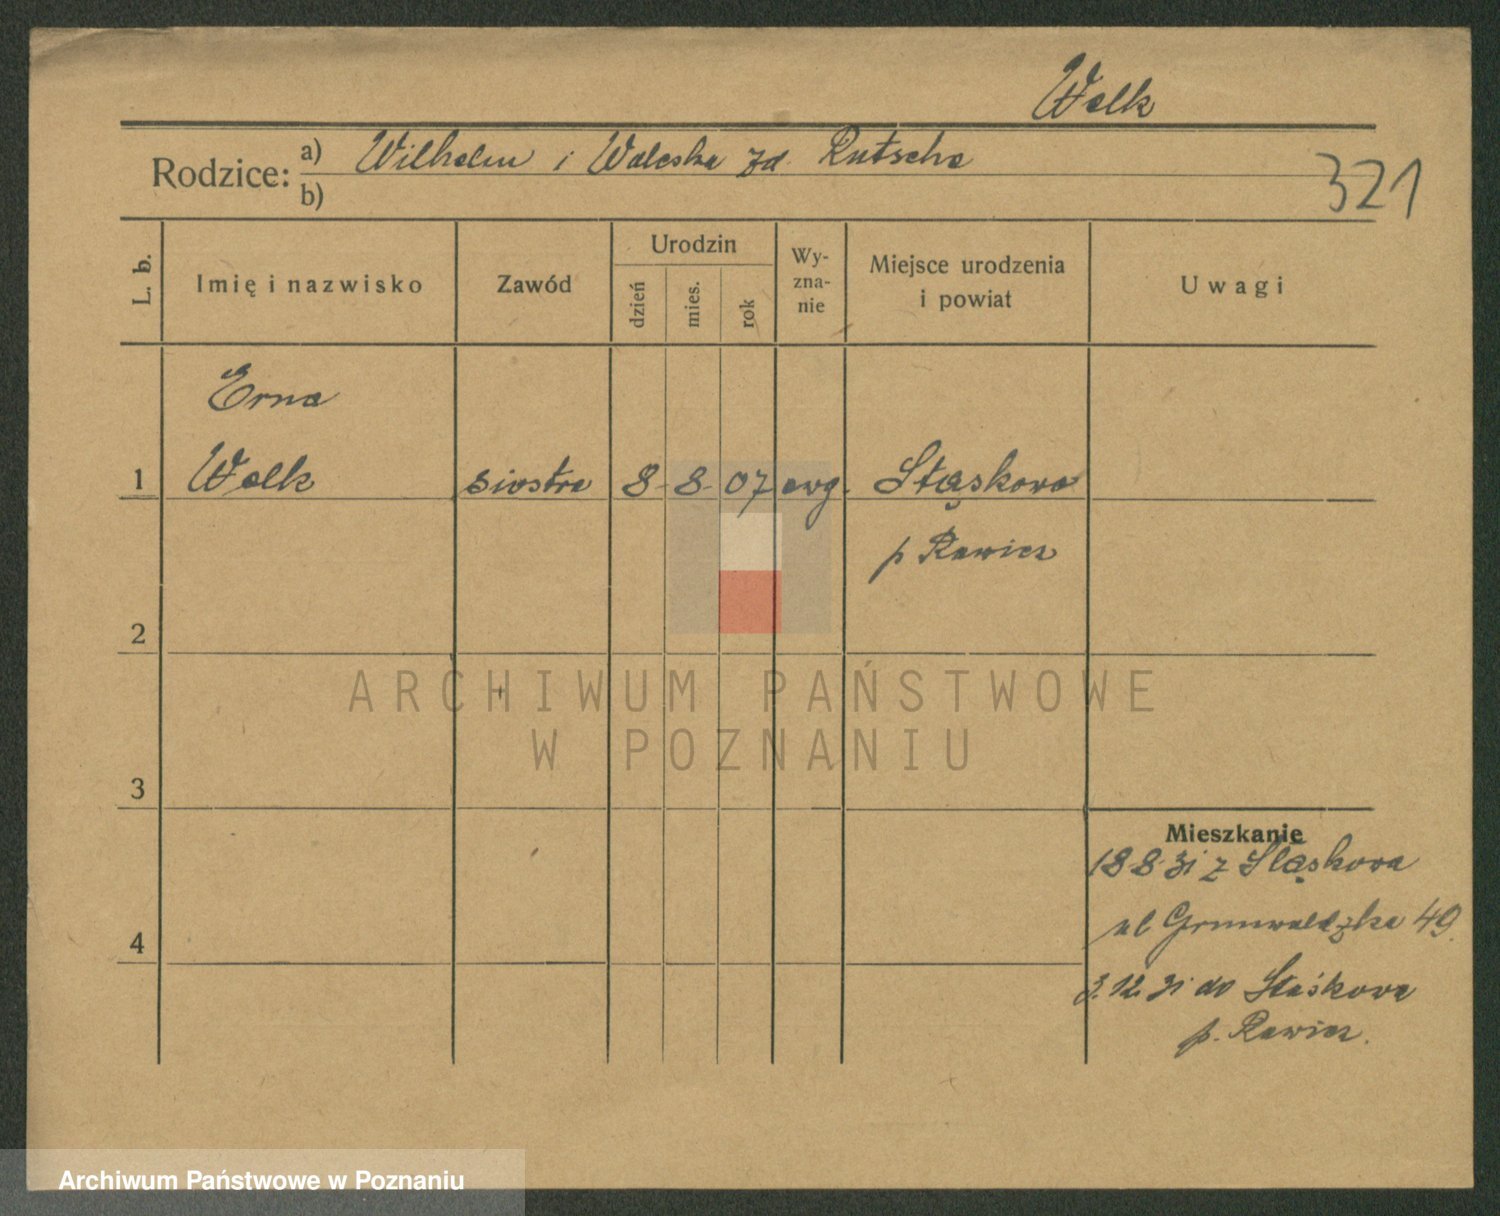 Welk
Rodzice: a) Wilhelm i Waleska zd. Rutsche
b)
321
L. b.
Imię i nazwisko
Zawód
Urodzin
dzień
mies.
rok
Wy-
zna-
nie
Miejsce urodzenia
i powiat
Uwagi
Erna
1 Welk siostra 8-8-07 ewg. Stąskowa
p Rawicz
2
3
4
Mieszkanie
18 8 31 z Stąskowa
ul Grunwaldzka 49.
3.12.31 do Staśkowa
p. Rawicz.
ARCHIWUM PAŃSTWOWE
W POZNANIU
Archiwum Państwowe w Poznaniu